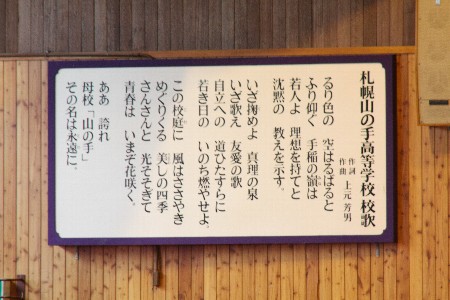 札幌山の手高等学校 校歌
作詞
作曲 上元芳男
るり色の 空はるばると
ふり仰ぐ 手稲の嶺は
若人よ 理想を持てと
沈黙の 教えを示す。
いざ掬めよ 真理の泉
いざ歌え 友愛の歌
自立への 道ひたすらに
若き日の いのち燃やせよ。
この校庭に 風はささやき
めぐりくる 美しの四季
さんさんと 光そそぎて
青春は いまぞ花咲く。
ああ 誇れ
母校「山の手」
その名は永遠に。